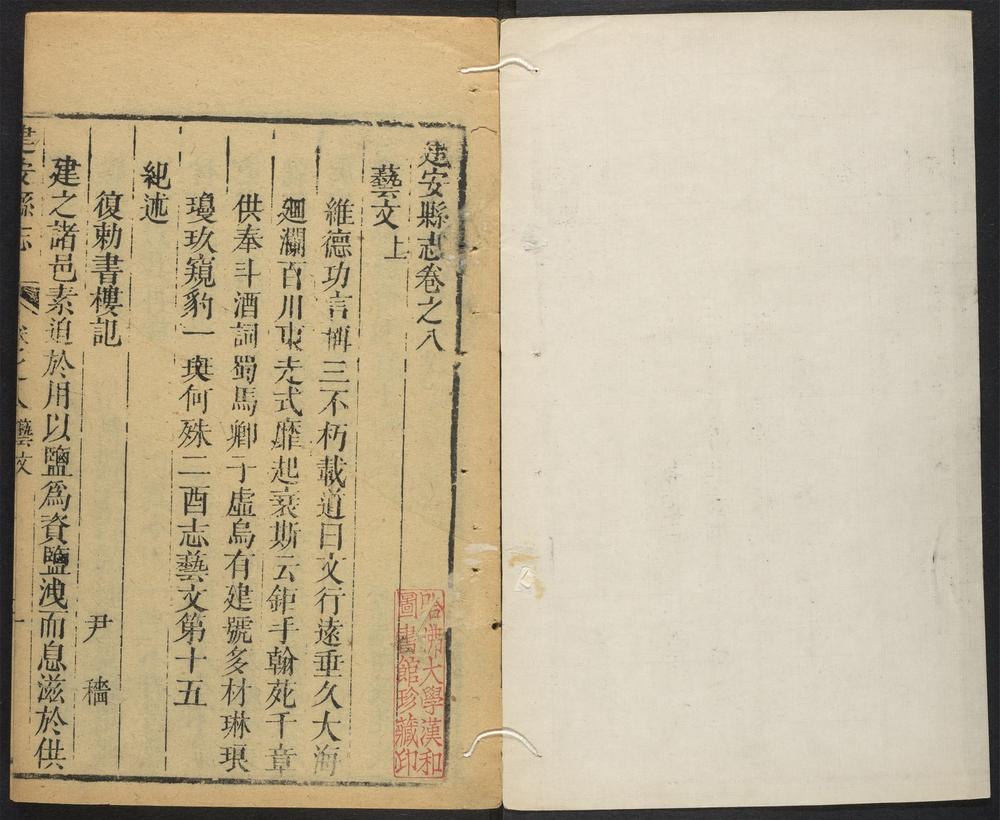 建安縣志卷之八
藝文上
維德功言稱三不朽載道曰文行遠垂久大海
廻瀾百川東走式靡起衰斯云鉅手翰苑千章
供奉斗酒詞蜀馬卿子虛烏有建號多材琳琅
瓊玖窺豹一斑何殊二酉志藝文第十五
紀述
復勅書樓記 尹穡
建之諸邑素迫於用以鹽爲資鹽洩而息滋於供
建安縣志 卷之八 藝文 一
哈佛大學漢和
圖書館珍藏印